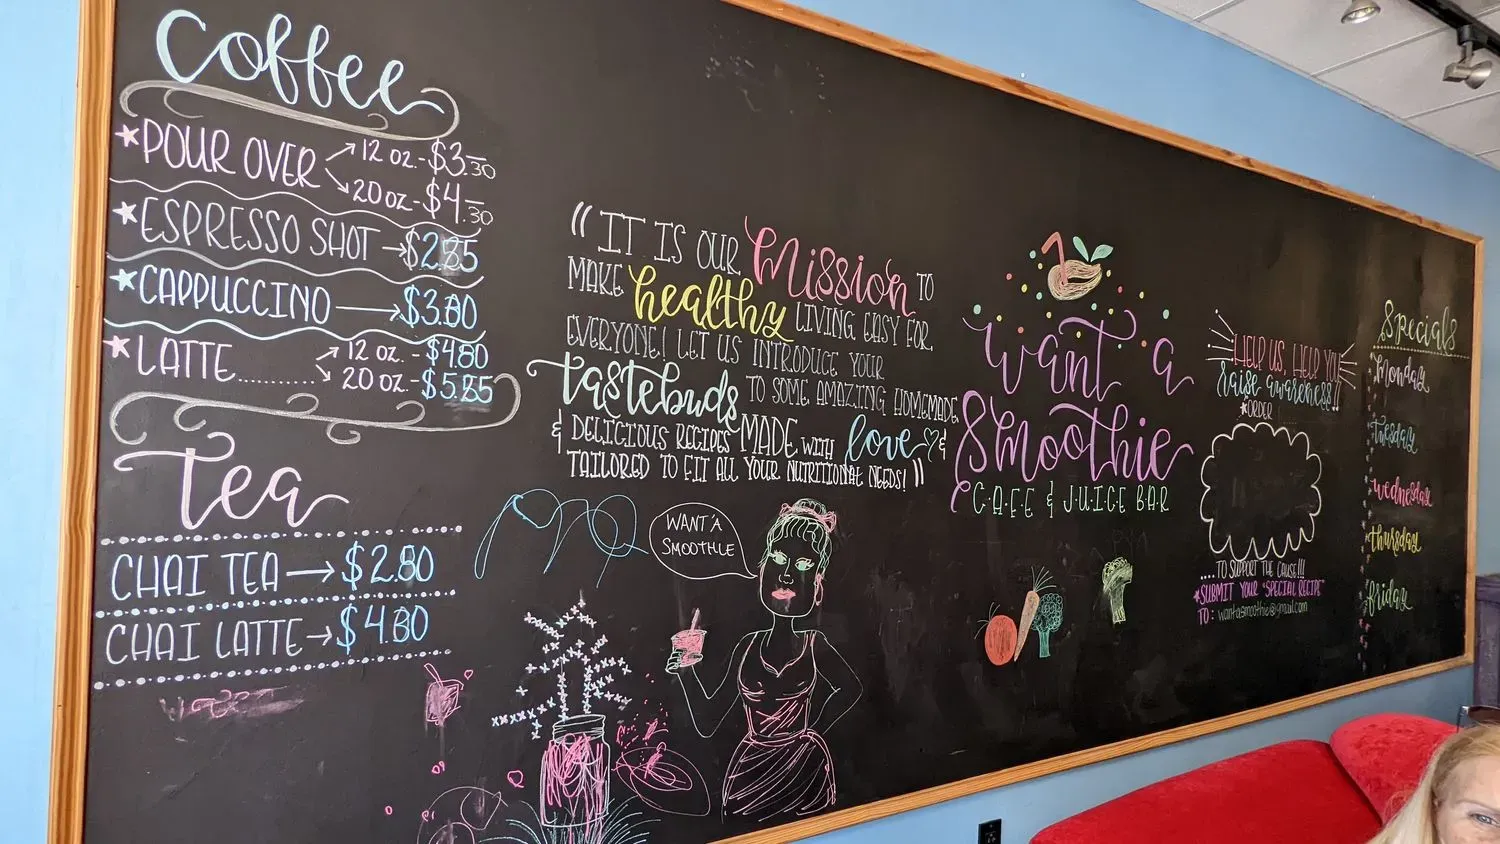 Coffee
POUR OVER 12 oz. - $3.30
20 oz. - $4.30
ESPRESSO SHOT $2.85
CAPPUCCINO $3.80
LATTE .......... 12 oz. - $4.80
20 oz. - $5.85
Tea
CHAI TEA $2.80
CHAI LATTE $4.80
"IT IS OUR Mission TO
MAKE healthy LIVING EASY FOR
EVERYONE! LET US INTRODUCE YOUR
tastebuds TO SOME AMAZING HOMEMADE
& DELICIOUS RECIPES MADE WITH love &
TAILORED TO FIT ALL YOUR NUTRITIONAL NEEDS!"
WANT A
SMOOTHIE
want a
Smoothie
CAFE & JUICE BAR
HELP US, HELP YOU
raise awareness!!
ORDER
....TO SUPPORT THE CAUSE!!!
SUBMIT YOUR "SPECIAL RECIPE"
TO: wantasmoothie@gmail.com
Specials
Monday
tuesday
wednesday
thursday
friday